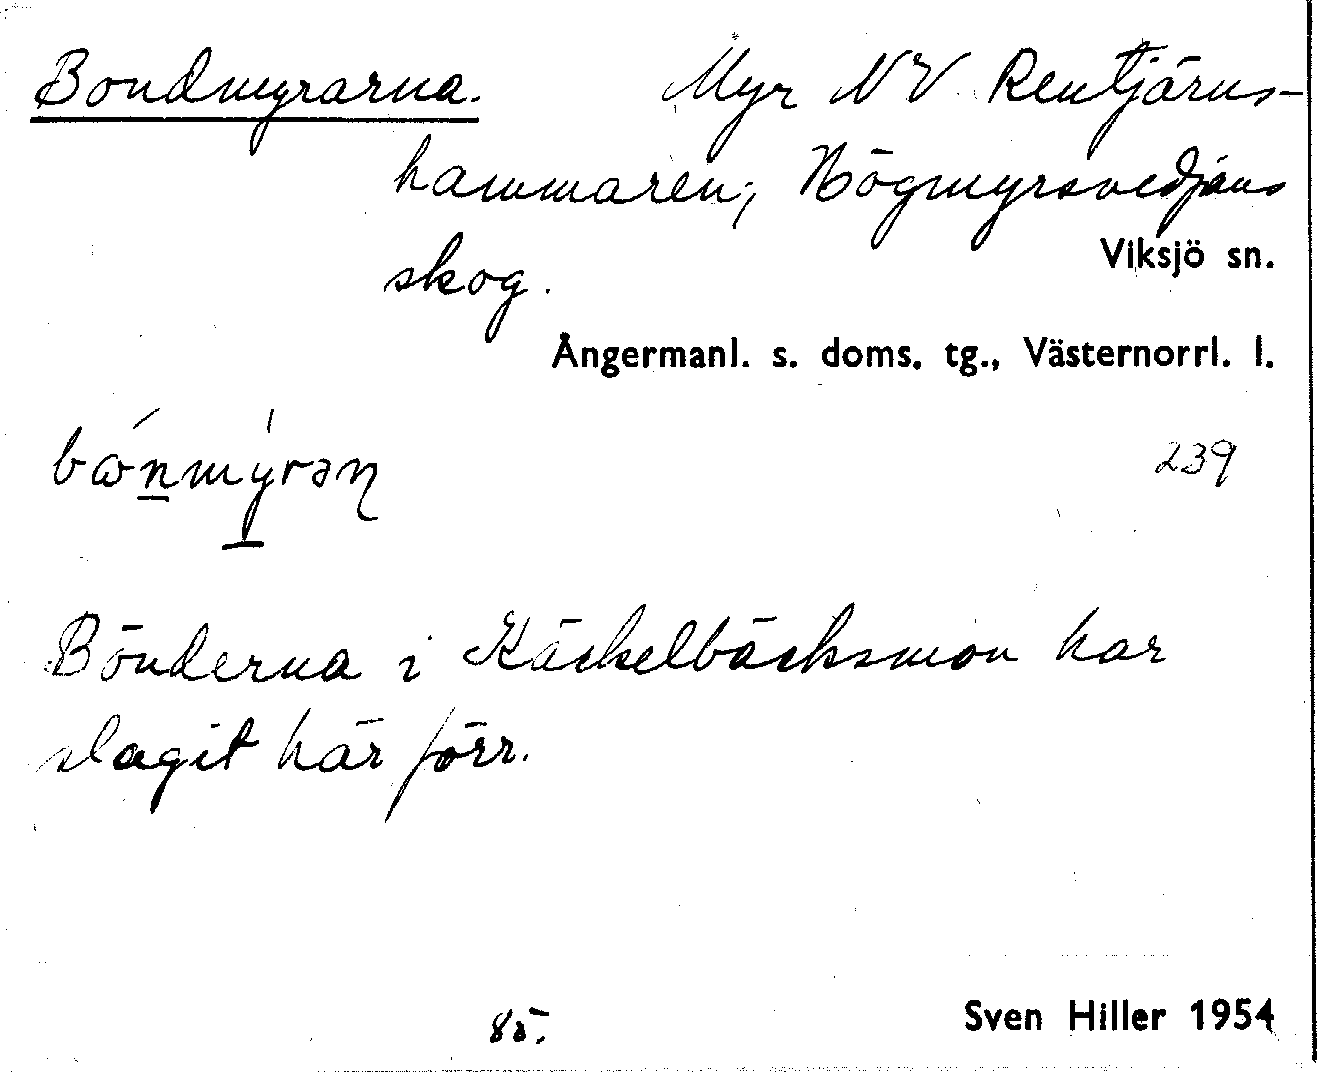 Bondmyrarna. Myr NV Rentjärns-
hammaren, Högmyrsvedjans
skog. Viksjö sn.
Ångermanl. s. doms. tg., Västernorrl. l.
239
Bönderna i Käckelbäcksmon har
slagit här förr.
85. Sven Hiller 1954